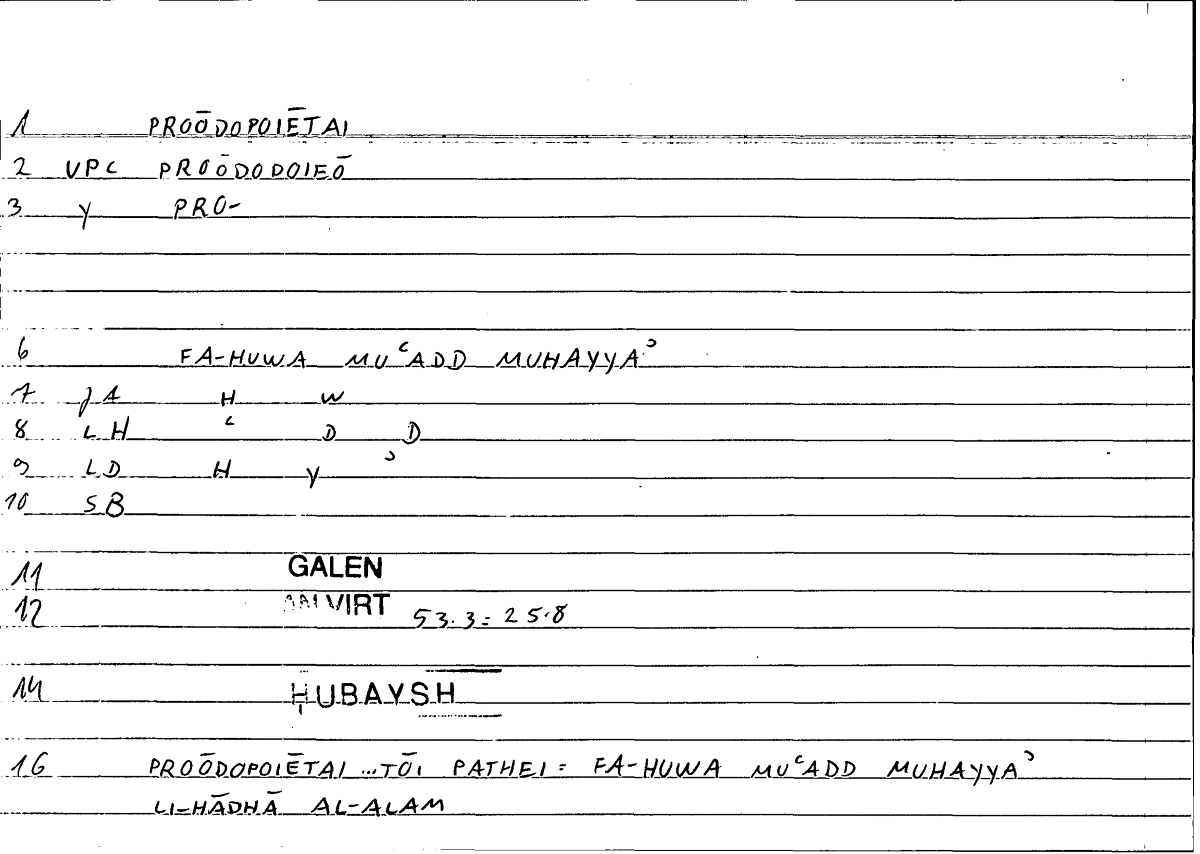 1 PROŌDOPOIĒTAI
2 VPC PROŌDODOIEŌ
3 Y PRO-
6 FA-HUWA MUʿADD MUHAYYAʾ
7 JA H W
8 LH ʿ D D
9 LD H Y ʾ
10 SB
11 GALEN
12 AN VIRT 53.3 = 25.8
14 ḤUBAYSH
16 PROŌDOPOIĒTAI ... TŌI PATHEI = FA-HUWA MUʿADD MUHAYYAʾ
LI-HĀDHĀ AL-ALAM